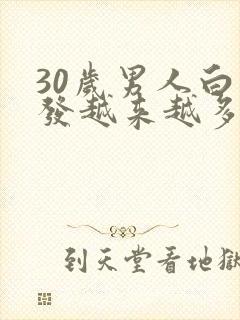 30歲男人白
發越來越多
到天堂看地獄